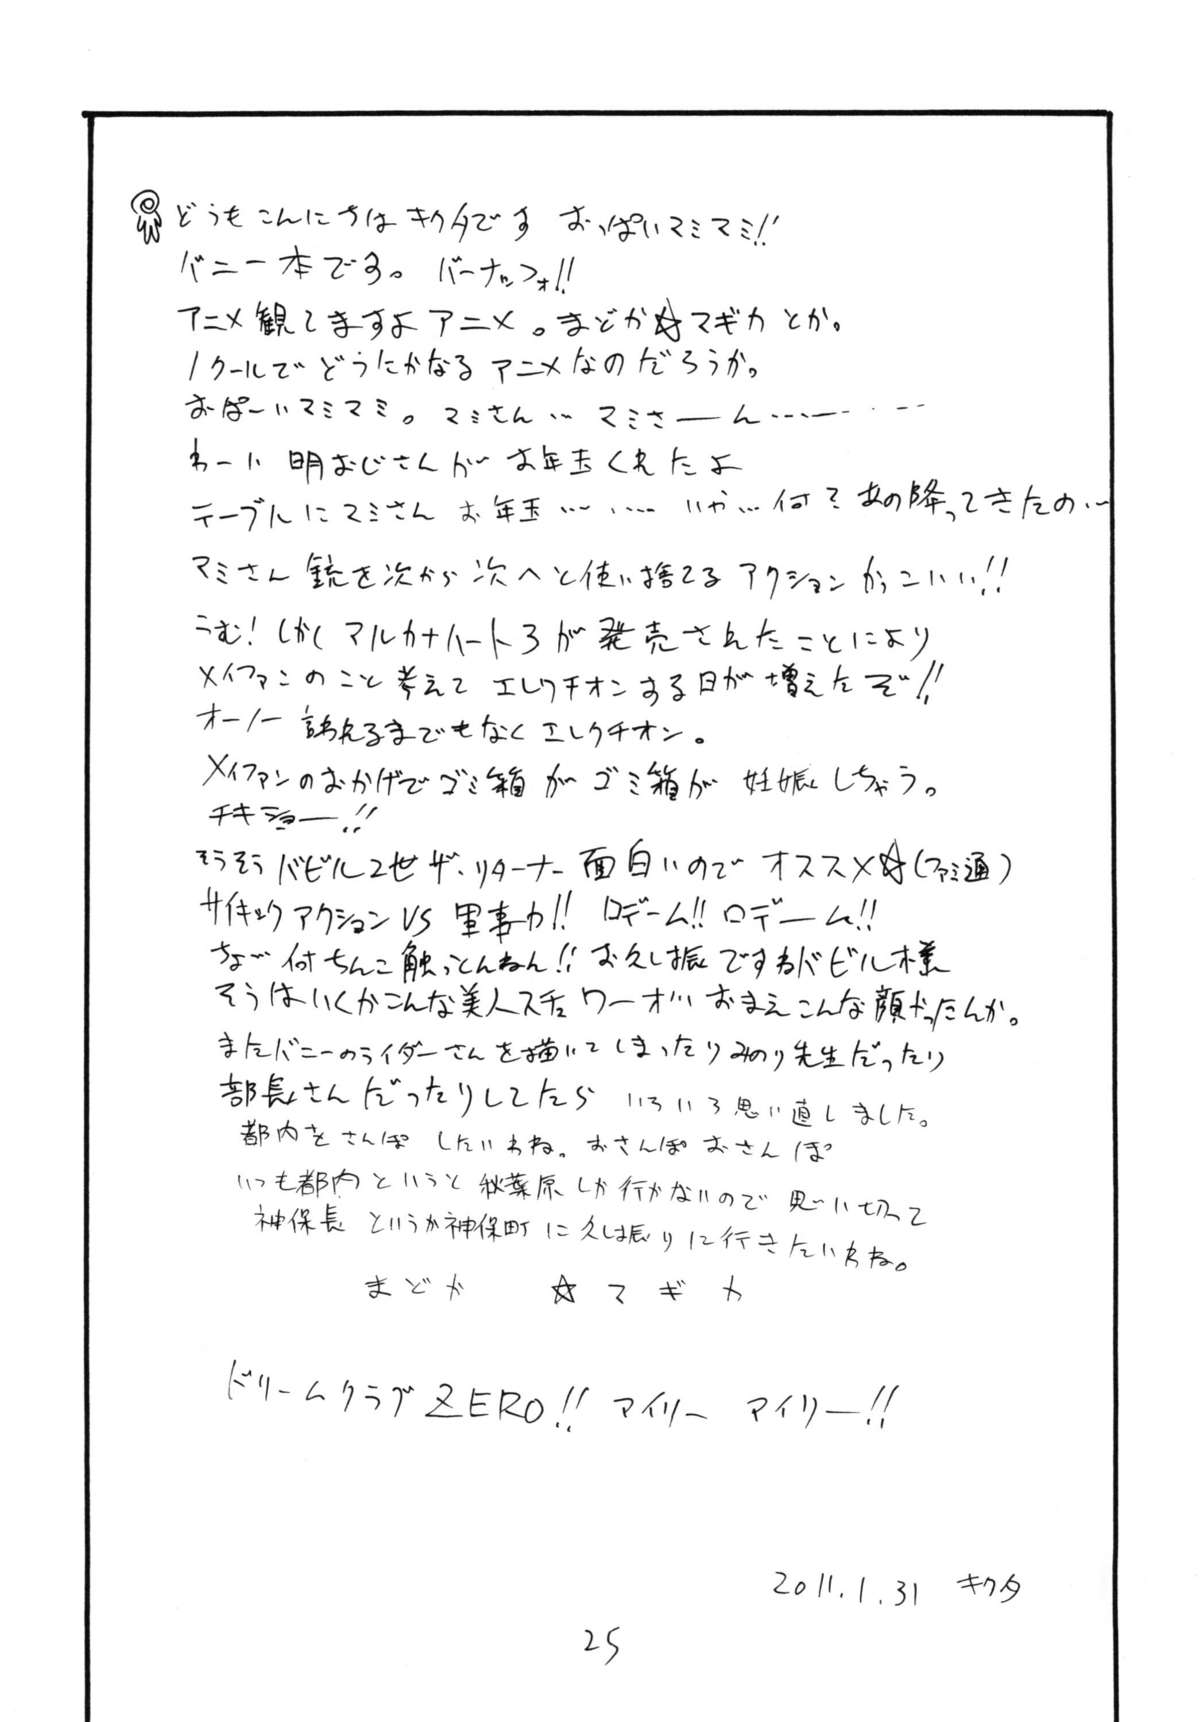 どうもこんにちはキクタです おっぱいマミマミ!!
バニー本です。 バーナッフォ!!
アニメ観てますよアニメ。まどか☆マギカとか。
1クールでどうにかなるアニメなのだろうか。
おぱーいマミマミ。 マミさん… マミさーん……
わーい 明おじさんが お年玉くれたよ
テーブルにマミさん お年玉……… いや…何であの降ってきたの…
マミさん 銃を次から次へと使い捨てる アクションかっこいい!!
うむ! しかし アルカナハート3が発売されたことにより
メイファンのこと考えて エレクチオンする日が増えたぞ!!
オーノー 訴えるまでもなくエレクチオン。
メイファンのおかげでゴミ箱が ゴミ箱が 妊娠しちゃう。
チキショー!!
そうそう バビル2世ザ・リターナー 面白いので オススメ☆(ファミ通)
サイキックアクションVS 軍事力!! ロデーム!! ロデーム!!
ちょ 何ちんこ触っとんねん!! お久し振ですねバビル様
そうはいくかこんな美人 ワーオ!! おまえこんな顔だったんか。
またバニーのライダーさんを描いてしまったりみのり先生だったり
部長さんだったりしてたら いろいろ思い直しました。
都内をさんぽ したいわね。おさんぽおさんぽ
いつも都内というと 秋葉原しか行かないので 思い切って
神保長 というか神保町に久し振りに行きたいわね。
まどか ☆マギカ
ドリームクラブZERO!! アイリー アイリー!!
2011.1.31 キクタ
25